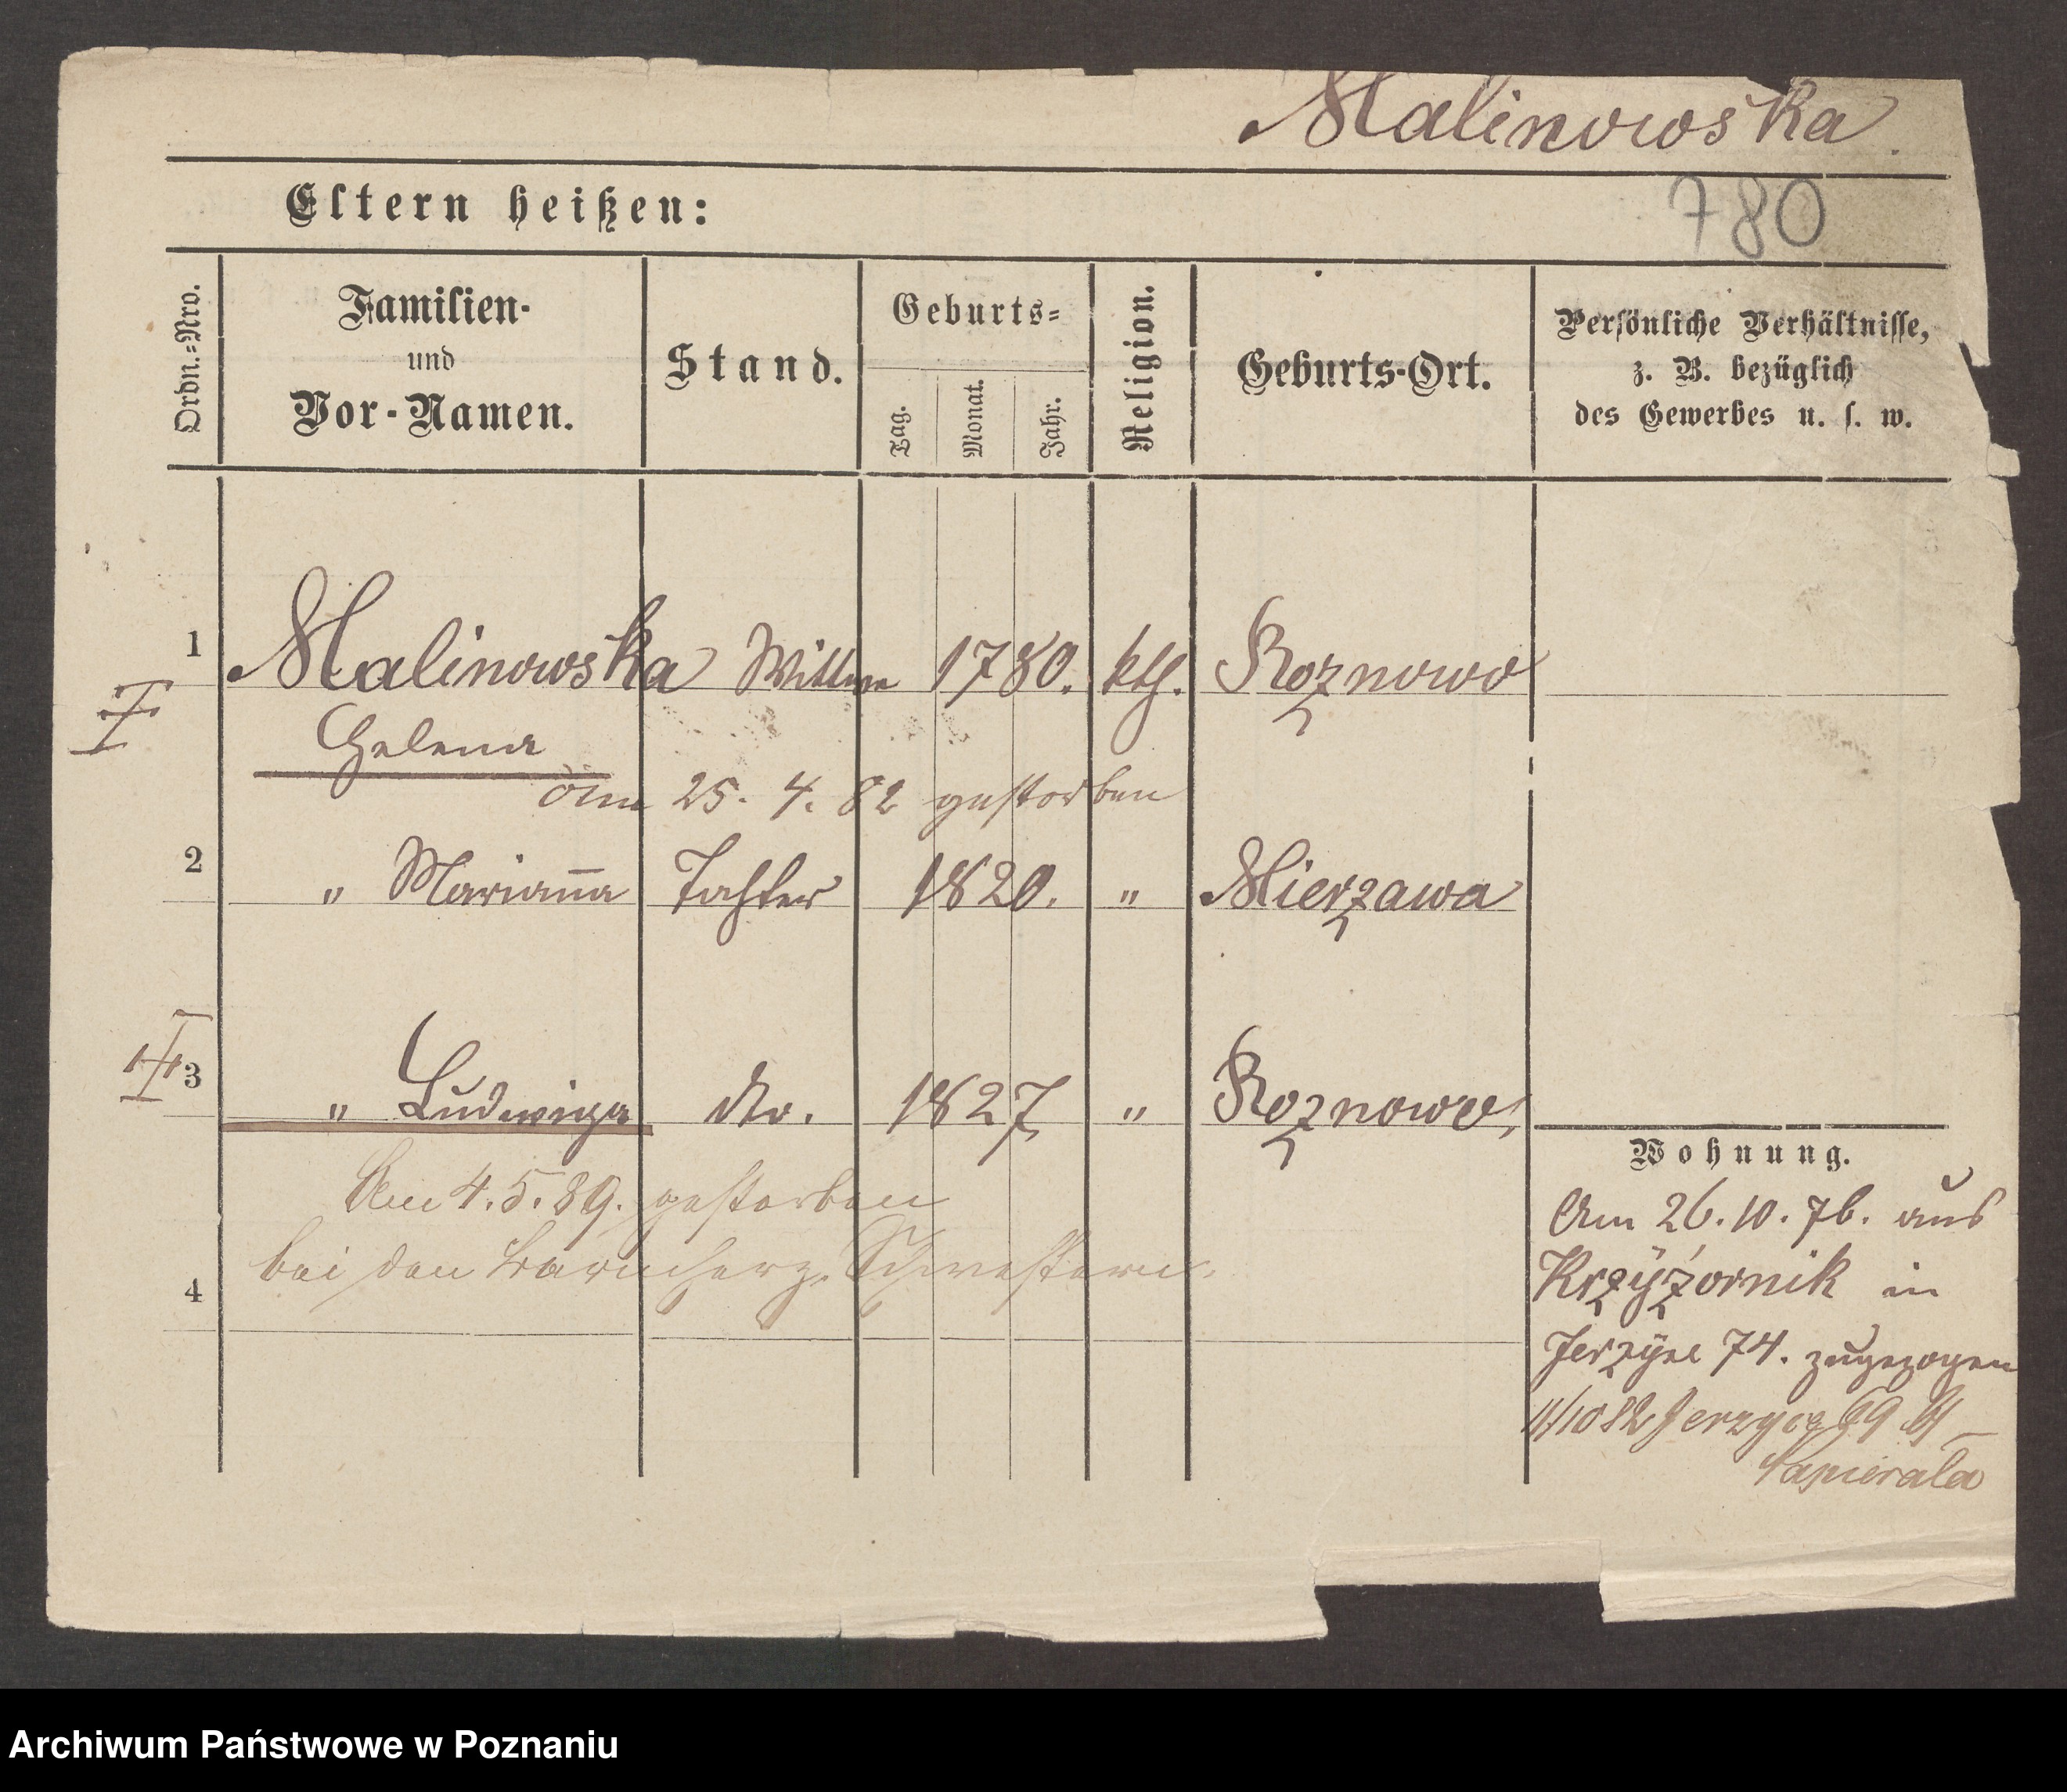 Malinowska.
780
Eltern heißen:
Ordn.=Nro.
Familien-
und
Vor-Namen.
Stand.
Geburts=
Tag.
Monat.
Jahr.
Religion.
Geburts-Ort.
Persönliche Verhältnisse,
z. B. bezüglich
des Gewerbes u. s. w.
1 Malinowska Wittwe 1780. kth. Roznowo
Helena
am 25. 4. 82 gestorben
2 " Marianna Tochter 1820. " Mierzawa
3 " Ludwiga do. 1827, " Roznowo,
Am 4. 5. 89. gestorben
bei den barmherz. Schwestern.
4
Wohnung.
Am 26. 10. 76. aus
Krzyżownik in
Jerzyce 74. zugezogen
11/10 82 Jerzyce 69 b/
Papierala
Archiwum Państwowe w Poznaniu